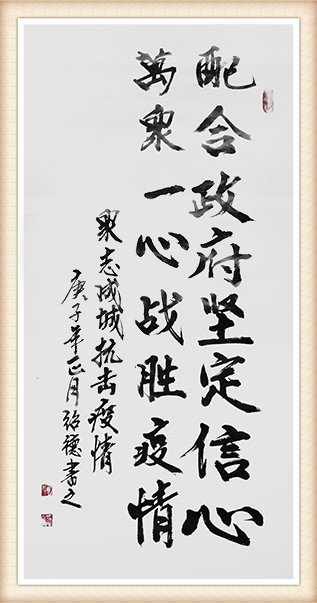 配合政府坚定信心
萬眾一心战胜疫情
眾志成城抗击疫情
庚子年正月绍德書之